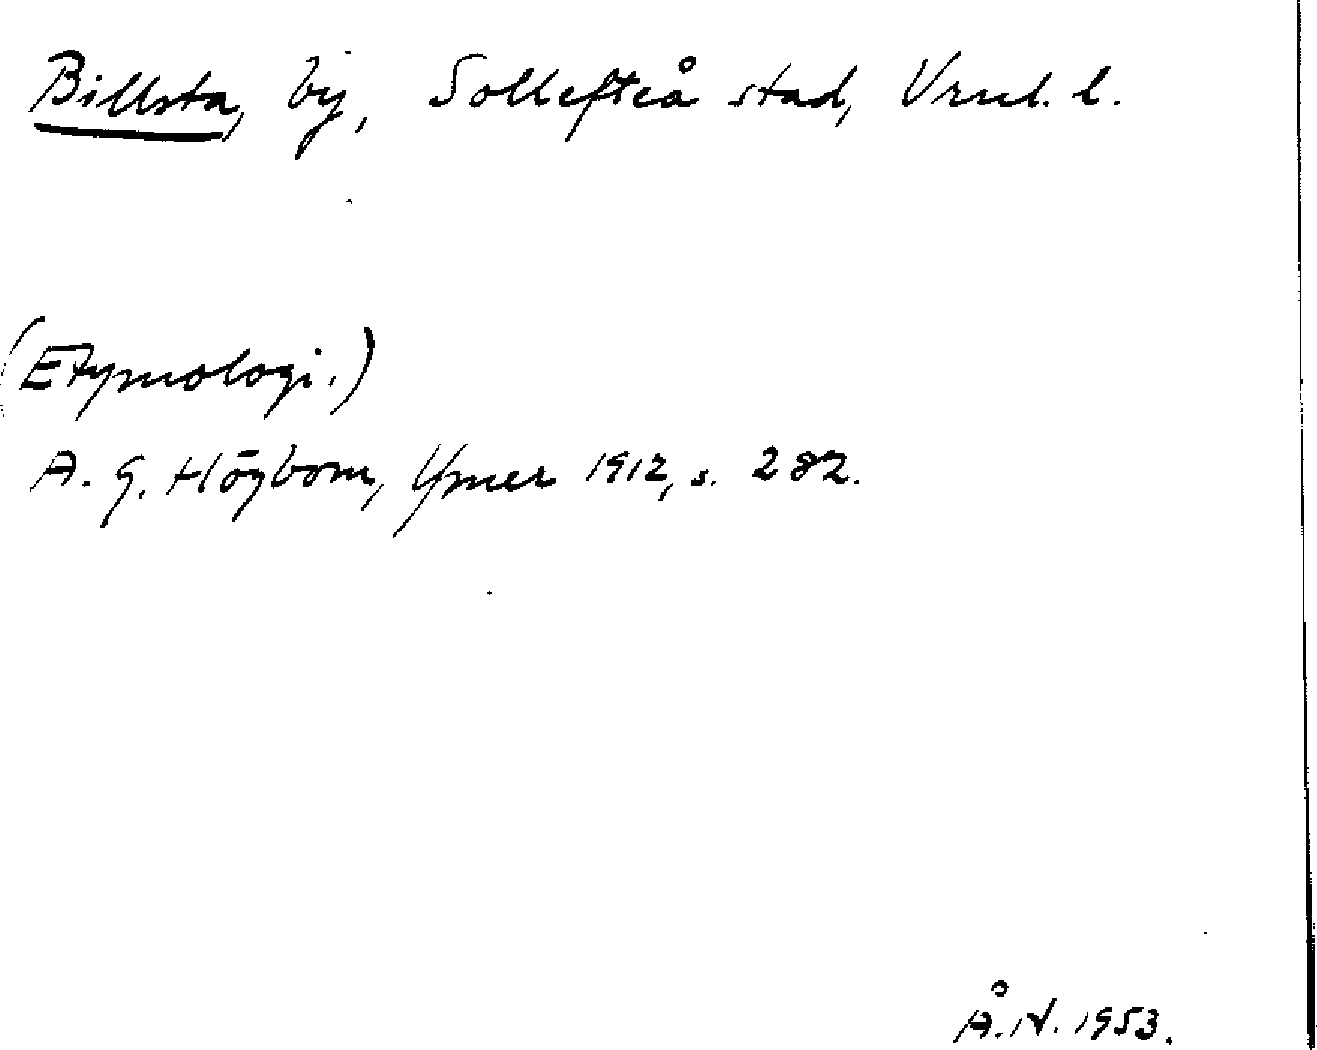 Billsta, by, Sollefteå stad, Vrnl. l.
(Etymologi.)
A. G. Högbom, Ymer 1912, s. 282.
Å. N. 1953.